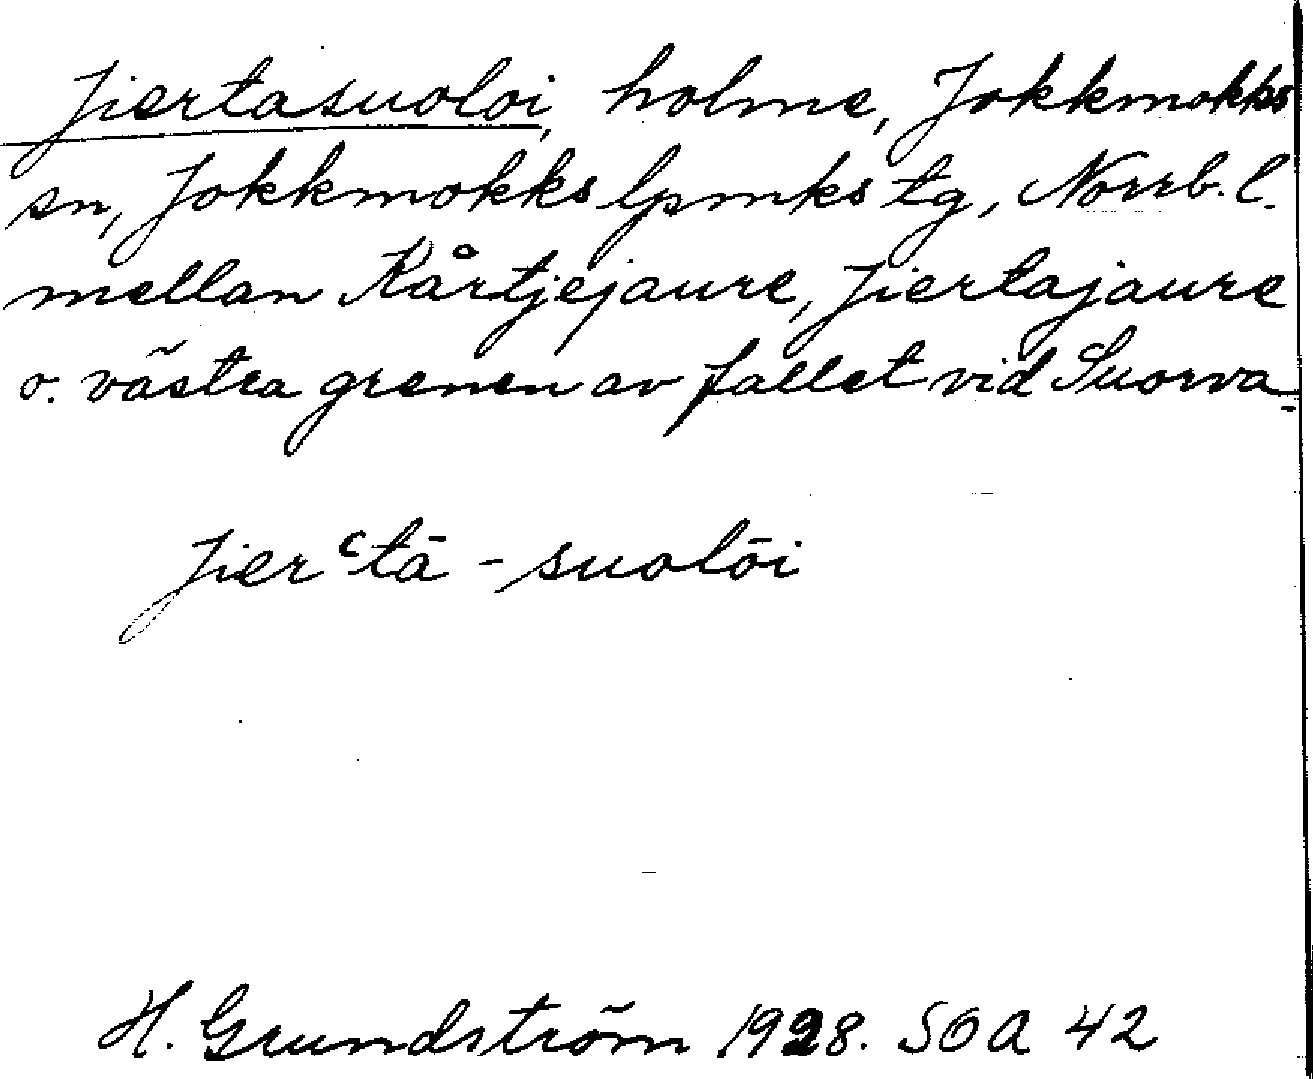 Jiertasuoloi, holme, Jokkmokks
sn, Jokkmokks lpmks tg, Norrb. l.
mellan Kårtjejaure, Jiertajaure
o. västra grenen av fallet vid Suorva.
Jierʿtā - suolōi
H. Grundström 1928. SOA 42